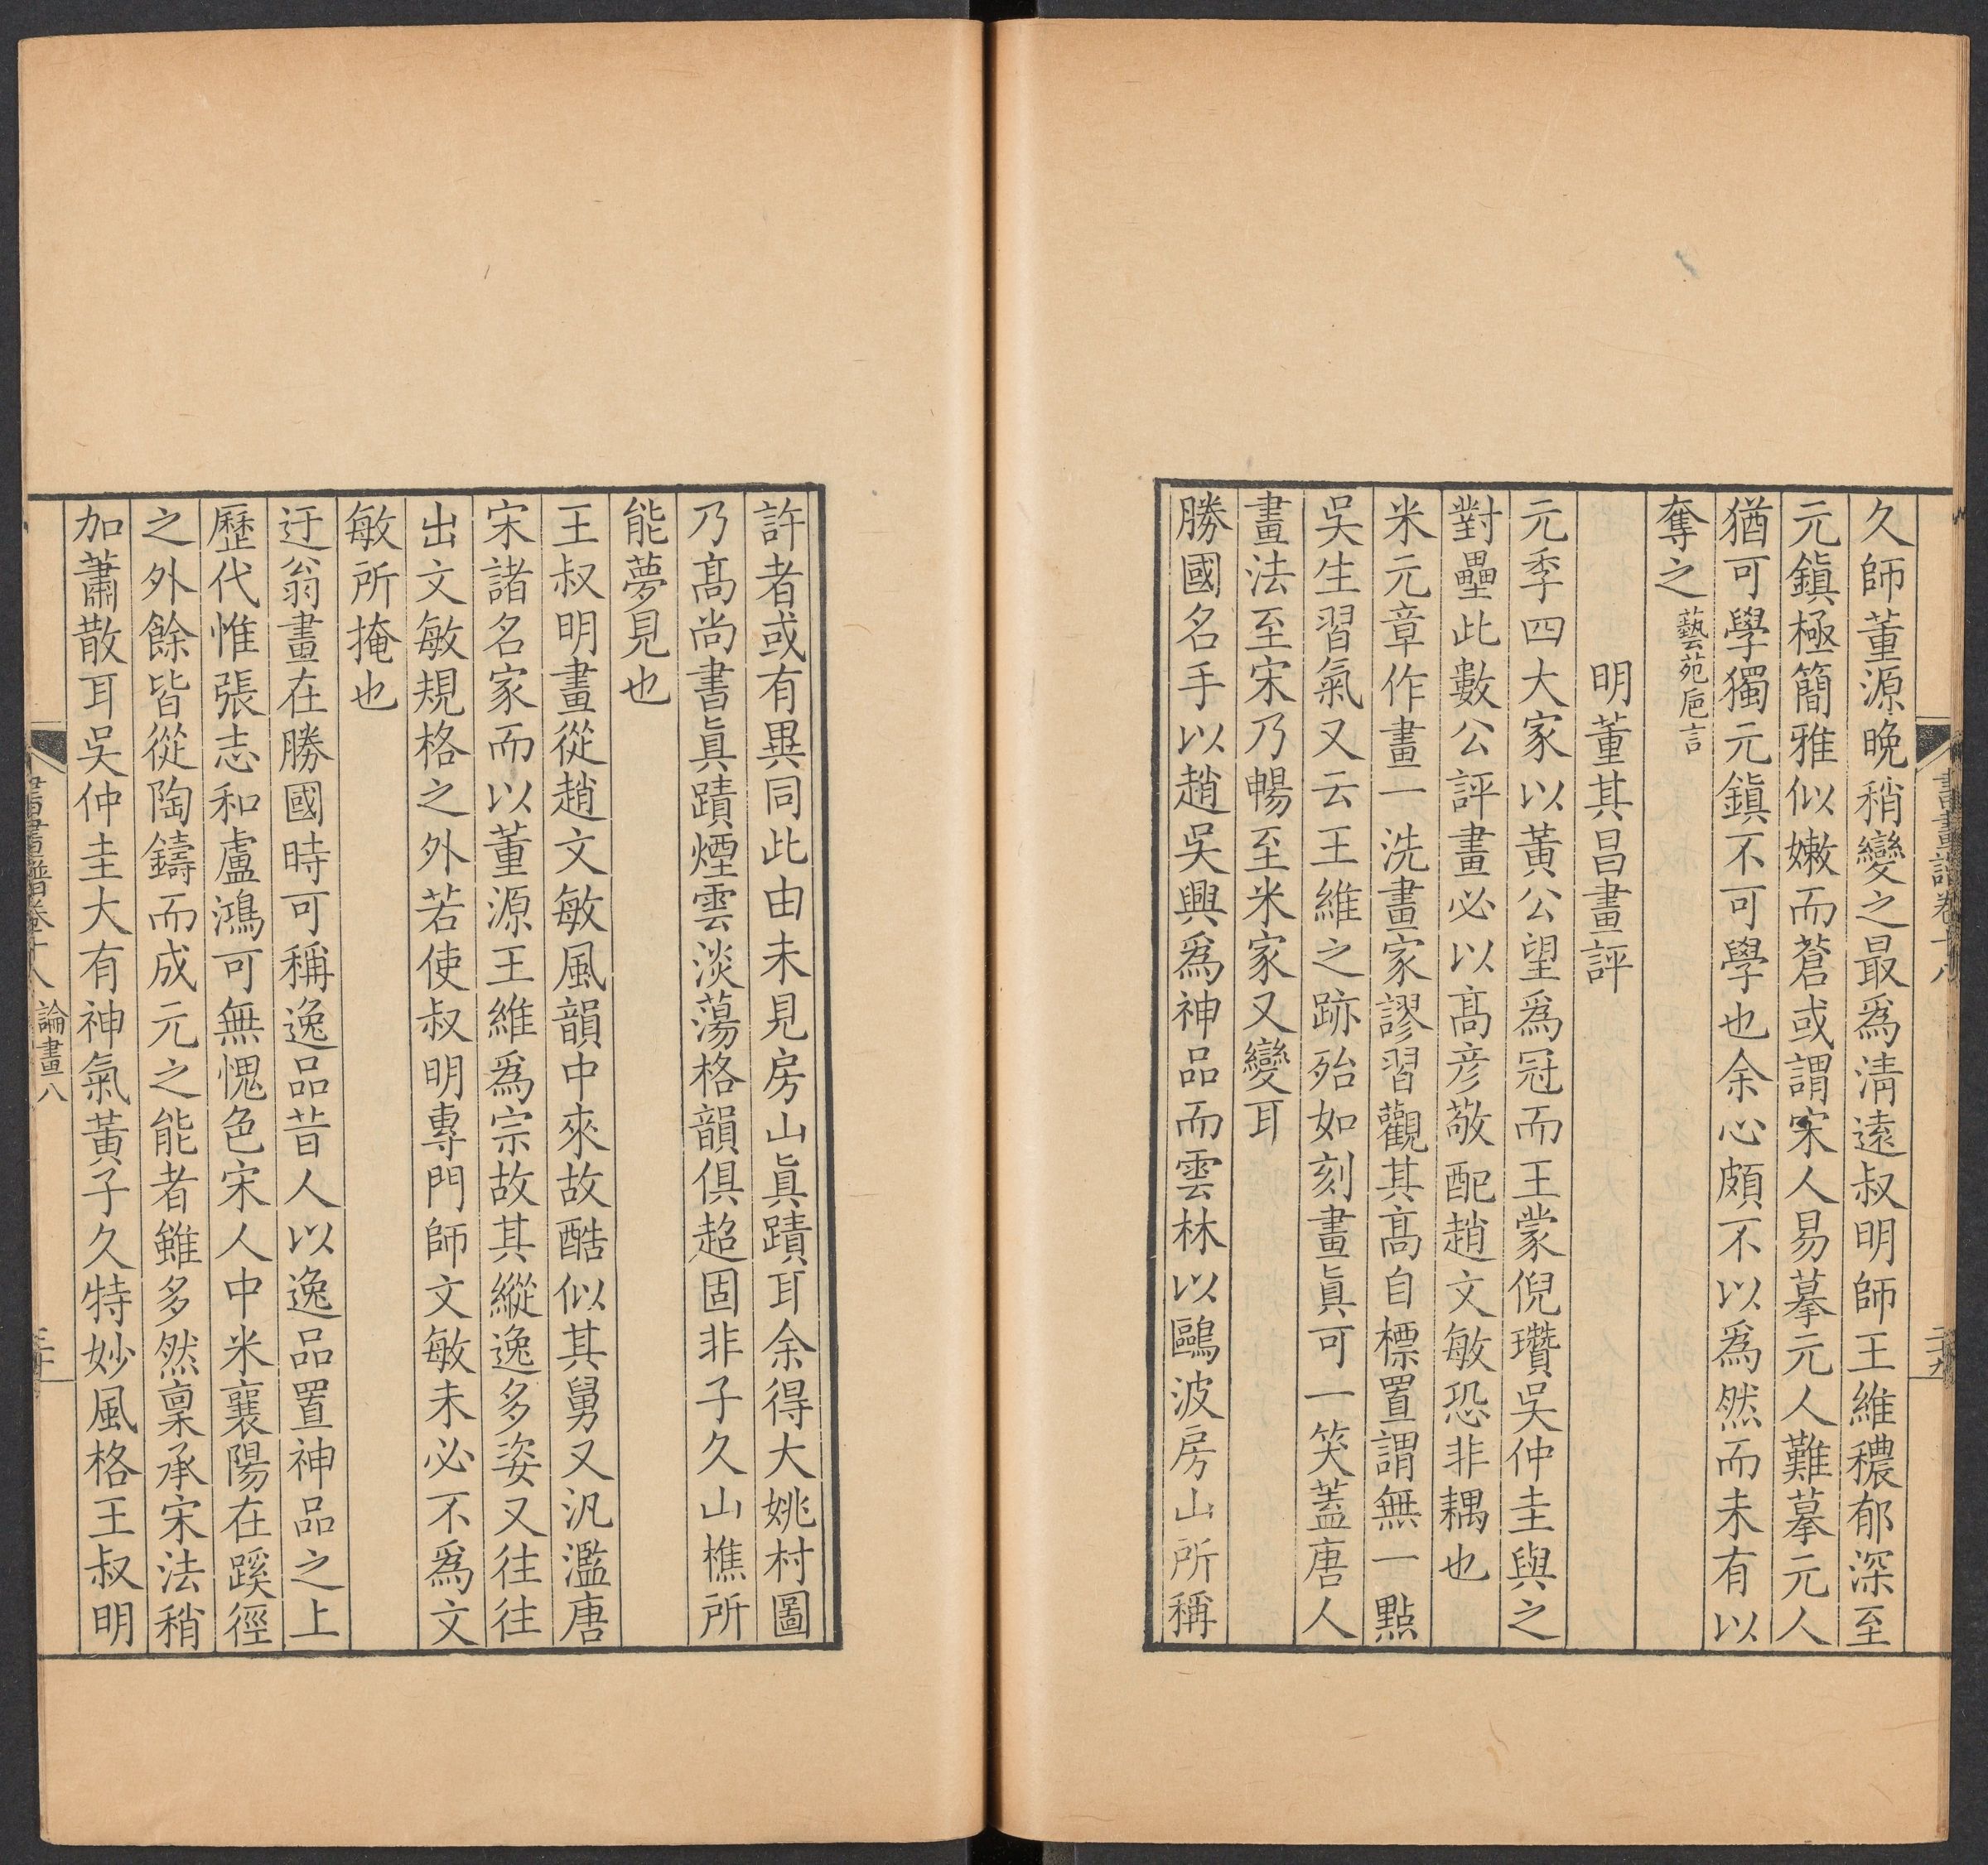 久師董源晚稍變之最爲清遠叔明師王維穠郁深至
元鎮極簡雅似嫩而蒼或謂宋人易摹元人難摹元人
猶可學獨元鎮不可學也余心頗不以爲然而未有以
奪之藝苑巵言
明董其昌畫評
元季四大家以黃公望爲冠而王蒙倪瓚吳仲圭與之
對壘此數公評畫必以高彥敬配趙文敏恐非耦也
米元章作畫一洗畫家謬習觀其高自標置謂無一點
吳生習氣又云王維之跡殆如刻畫眞可一笑蓋唐人
畫法至宋乃暢至米家又變耳
勝國名手以趙吳興爲神品而雲林以鷗波房山所稱
書畫譜卷十八
二十九
許者或有異同此由未見房山眞蹟耳余得大姚村圖
乃高尚書眞蹟煙雲淡蕩格韻俱超固非子久山樵所
能夢見也
王叔明畫從趙文敏風韻中來故酷似其舅又汎濫唐
宋諸名家而以董源王維爲宗故其縱逸多姿又往往
出文敏規格之外若使叔明專門師文敏未必不爲文
敏所掩也
迂翁畫在勝國時可稱逸品昔人以逸品置神品之上
歷代惟張志和盧鴻可無愧色宋人中米襄陽在蹊徑
之外餘皆從陶鑄而成元之能者雖多然稟承宋法稍
加蕭散耳吳仲圭大有神氣黃子久特妙風格王叔明
書畫譜卷十八 論畫八
三十